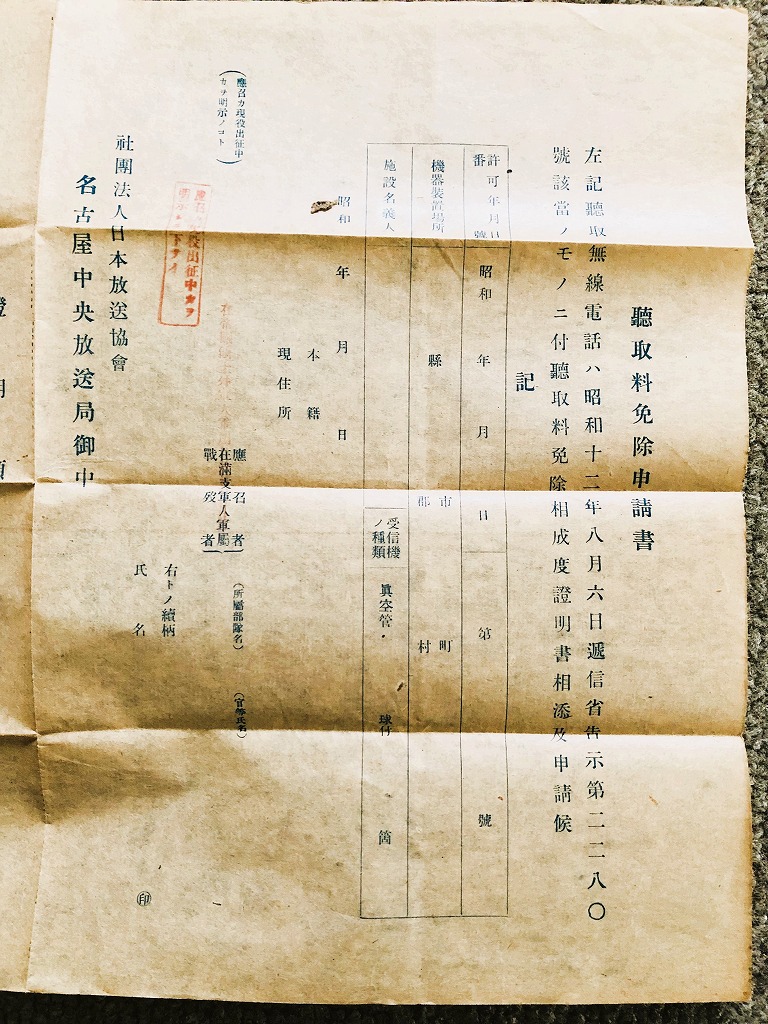 聽取料免除申請書
左記聽取無線電話ハ昭和十三年八月六日遞信省告示第二二八〇
號該當ノモノニ付聽取料免除相成度證明書相添及申請候
記
許可年月日
番號
昭和 年 月 日 第 號
機器裝置場所
縣 市 郡 町 村
施設名義人
受信機ノ種類
眞空管・ 球付 箇
昭和 年 月 日
本籍
現住所
應召者
在滿支軍人軍屬
戰歿者
(所屬部隊名) (官等氏名)
右トノ續柄
氏名 ㊞
(應召カ現役出征中
カヲ明示ノコト)
役出征中カヲ
下サイ
社團法人日本放送協會
名古屋中央放送局御中
證明願